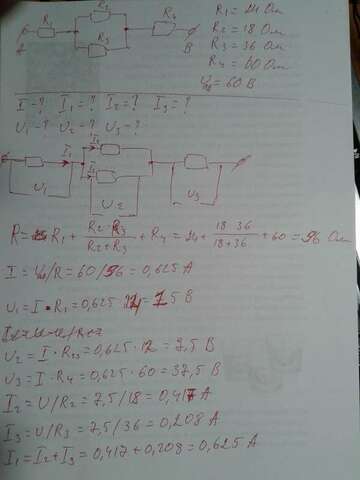 R₁ R₂ R₄
A R₃ B
R₁ = 24 Ом
R₂ = 18 Ом
R₃ = 36 Ом
R₄ = 60 Ом
= 60 В
I - ? I₁ = ? I₂ = ? I₃ = ?
U₁ - ? U₂ = ? U₃ - ?
I₁ I₂
I₃
U₁ U₂ U₃
R = R₁ + R₂·R₃/R₂+R₃ + R₄ = 24 + 18·36/18+36 + 60 = 96 Ом
I = /R = 60/96 = 0,625 А
U₁ = I · R₁ = 0,625 · 5 В
U₂ = I · R₂₃ = 0,625 · 12 = 7,5 В
U₃ = I · R₄ = 0,625 · 60 = 37,5 В
I₂ = U/R₂ = 7,5/18 = 0,417 А
I₃ = U/R₃ = 7,5/36 = 0,208 А
I₁ = I₂ + I₃ = 0,417 + 0,208 = 0,625 А